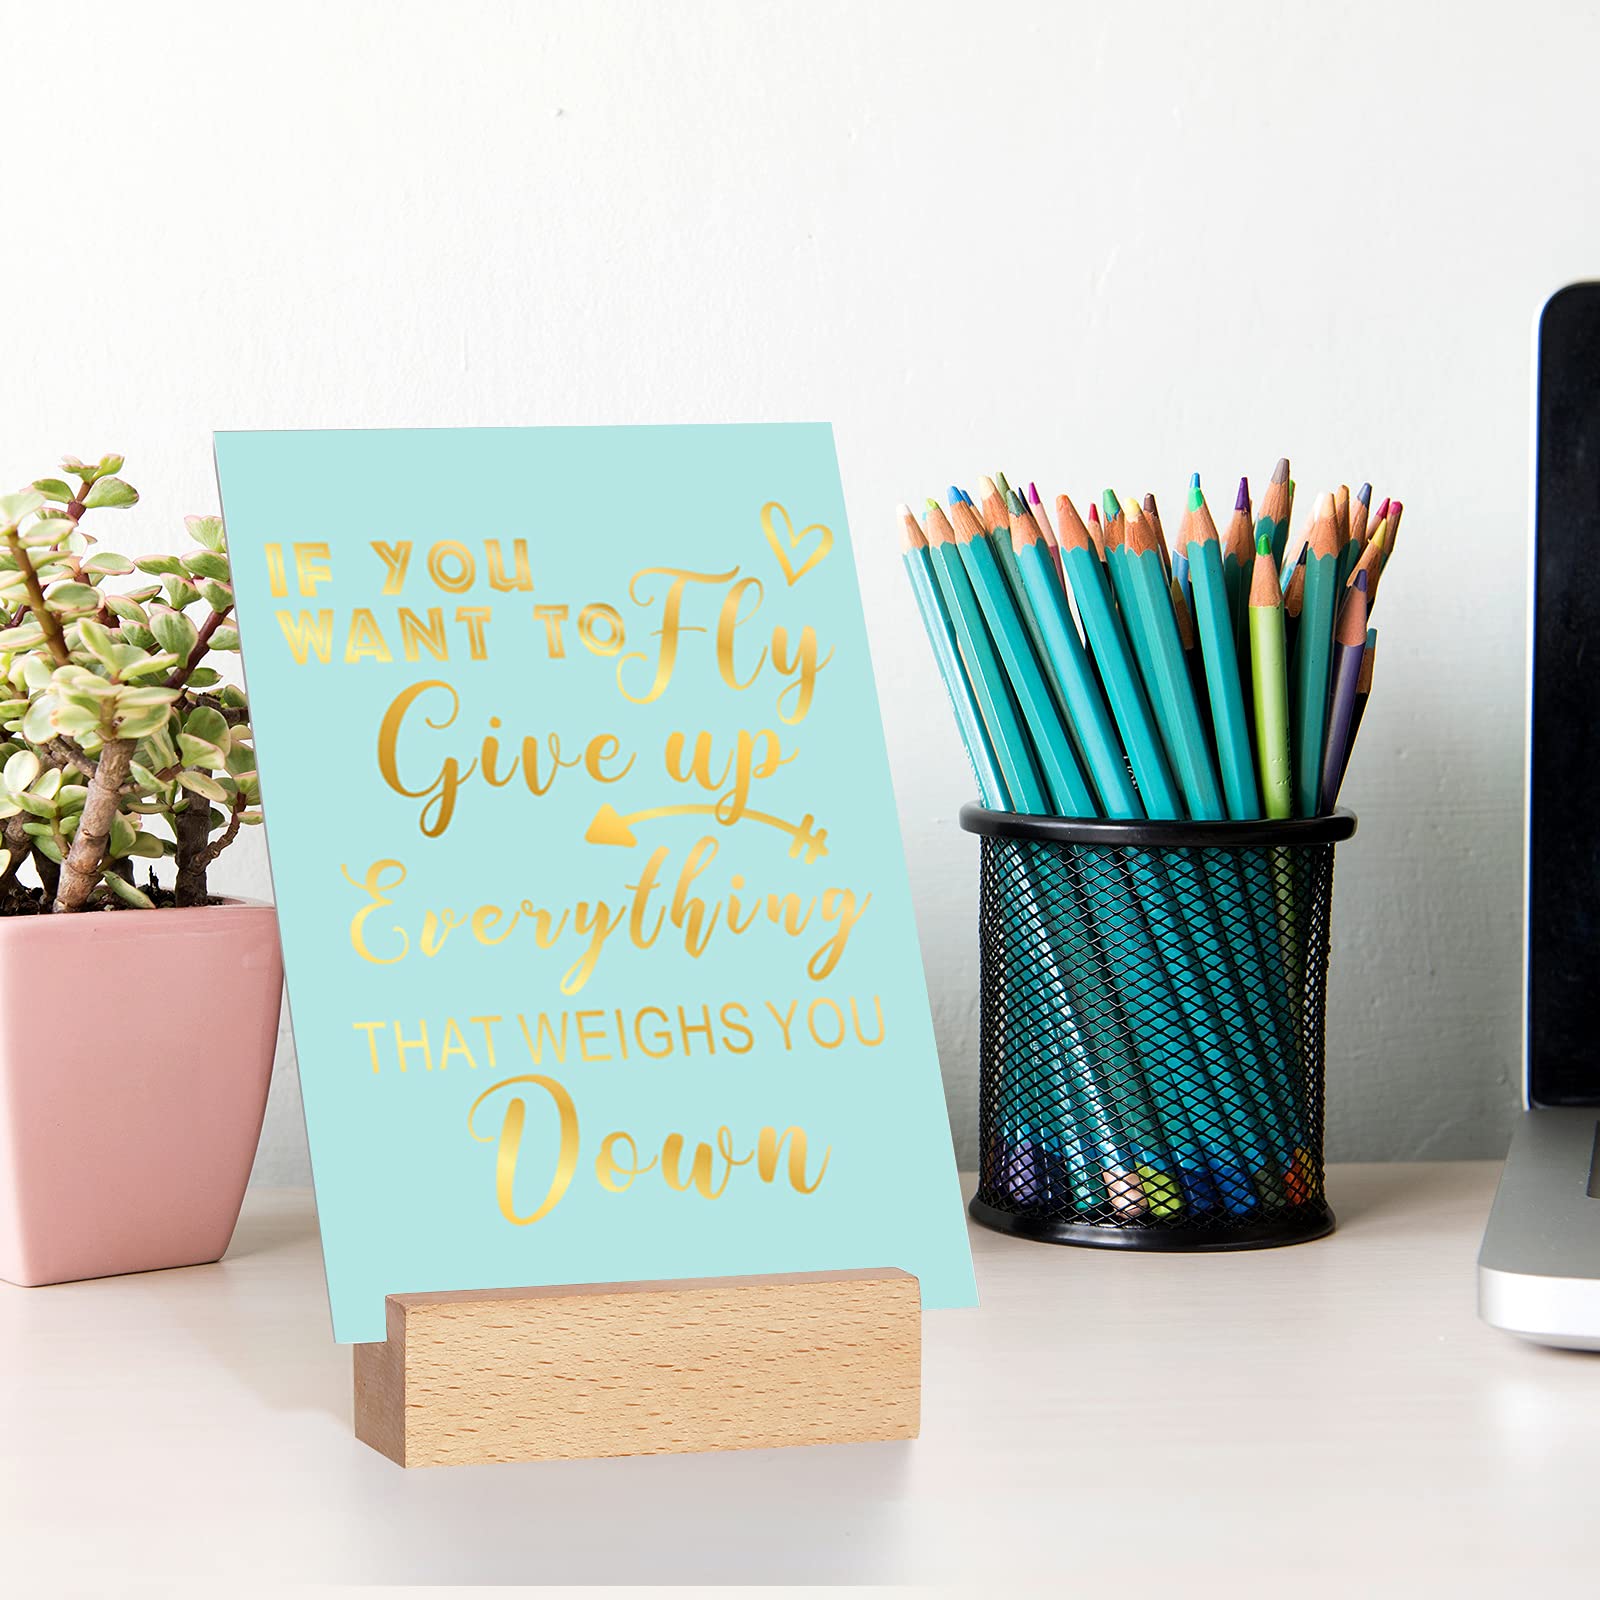 IF YOU
WANT TO Fly
Give up
Everything
THAT WEIGHS YOU
Down